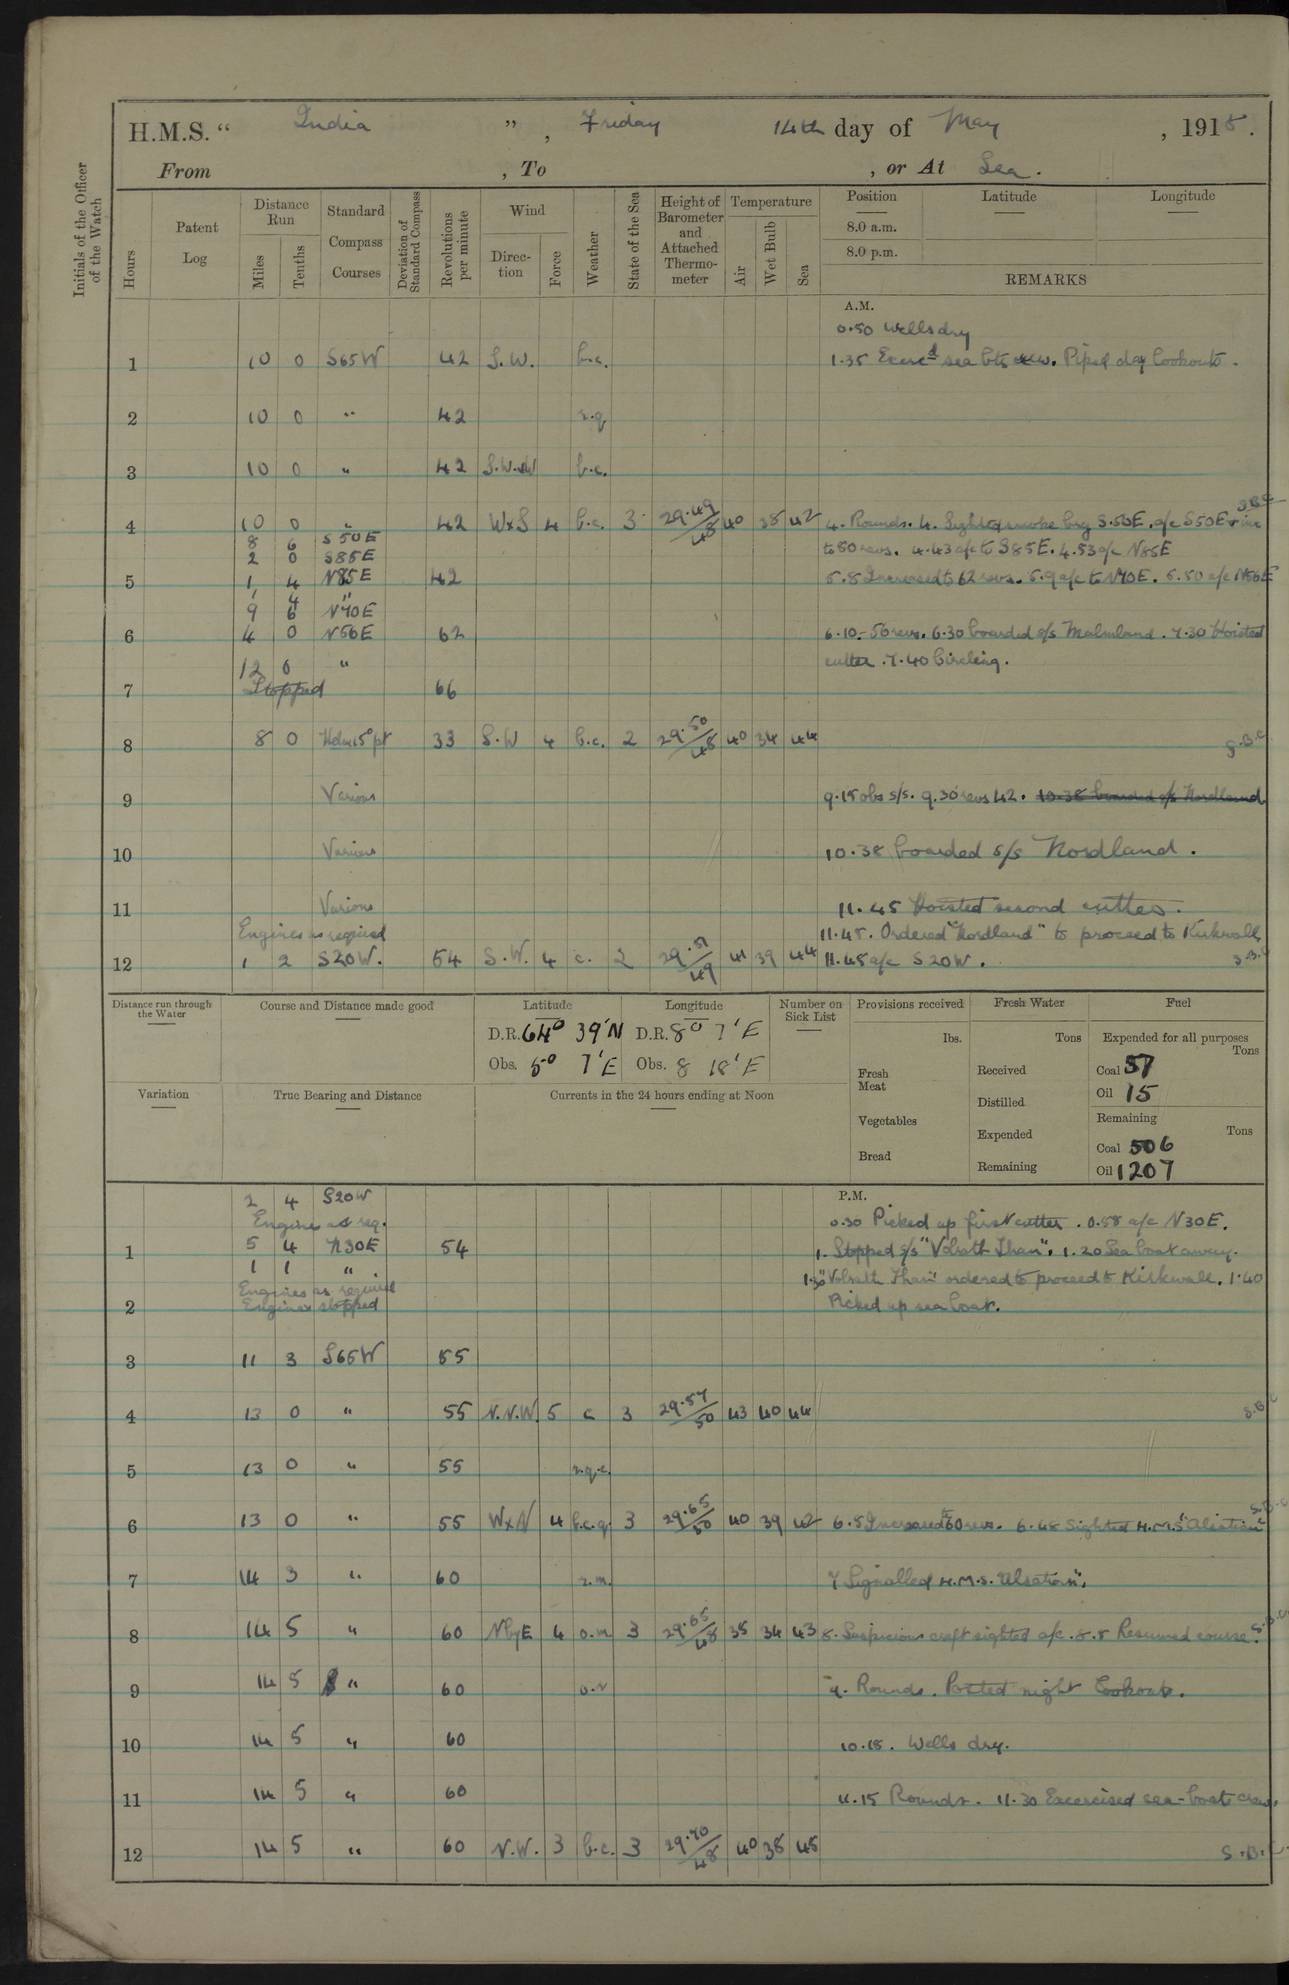 H.M.S. “ India ” , Friday 14th day of May , 1915 .
From , To , or At Sea .
Initials of the Officer of the Watch
Hours
Patent Log
Distance Run
Miles
Tenths
Standard Compass Courses
Deviation of Standard Compass
Revolutions per minute
Wind
Direction
Force
Weather
State of the Sea
Height of Barometer and Attached Thermometer
Temperature
Air
Wet Bulb
Sea
Position Latitude Longitude
8.0 a.m.
8.0 p.m.
REMARKS
A.M.
0.50 Wells dry
1 10 0 S65W 42 S.W. b.c. 1.35 Exerc'd sea bts crew. Piped day lookouts.
2 10 0 " 42 r.q
3 10 0 " 42 b.c.
4 10 0 " 42 WxS 4 b.c. 3 29.49/48 40 38 42 4. Rounds. 4. Sighted smoke brg S.50E. a/c S50E & inc
8 6 S50E
2 0 S85E to 50 revs. 4.43 a/c to S85E. 4.53 a/c N85E
5 1 4 N85E 42 5.8 Increased to 62 revs. 5.9 a/c to N70E. 5.50 a/c N56E
1 4 "
9 6 N70E
6 4 0 N56E 62 6.10 - 56 revs. 6.30 boarded s/s Malmland. 7.30 Hoisted
12 6 " cutter. 7.40 Circling.
7 Stopped 66
8 8 0 Helm 15° pt 33 S.W 4 b.c. 2 29.50/48 40 34 44 S.B.C
9 Various 9.15 obs s/s. 9.30 revs 42. 10.38 boarded s/s Nordland
10 Various 10.38 boarded s/s Nordland.
11 Various 11.45 Hoisted second cutter.
Engines as required 11.45. Ordered "Nordland" to proceed to Kirkwall
12 1 2 S20W. 54 S.W. 4 c. 2 29.51/49 41 39 44 11.48 a/c S20W. S.B.C
Distance run through the Water
Course and Distance made good
Latitude
D.R. 64° 39'N
Obs. 5° 7'E
Longitude
D.R. 8° 7'E
Obs. 8 18'E
Number on Sick List
Provisions received
lbs.
Fresh Meat
Vegetables
Bread
Fresh Water
Tons
Received
Distilled
Expended
Remaining
Fuel
Expended for all purposes
Tons
Coal 57
Oil 15
Remaining
Tons
Coal 506
Oil 1207
Variation
True Bearing and Distance
Currents in the 24 hours ending at Noon
P.M.
2 4 S20W
Engines as req. 0.30 Picked up first cutter. 0.58 a/c N30E.
1 5 4 N30E 54 1. Stopped s/s "Valrath Tham". 1.20 Sea boat away.
1 1 " 1.30 "Valrath Tham" ordered to proceed to Kirkwall. 1.40
Engines as required
2 Engines stopped Picked up sea boat.
3 11 3 S65W 55
4 13 0 " 55 N.N.W. 5 c 3 29.57/50 43 40 44 S.B.C
5 13 0 " 55 r.q.c.
6 13 0 " 55 WxN 4 b.c.q. 3 29.65/50 40 39 42 6.5 Increased to 60 revs. 6.48 Sighted H.M.S "Alsatian" S.B.C
7 14 3 " 60 r.m. 7 Signalled H.M.S. "Alsatian".
8 14 5 " 60 NbyE 4 o.m 3 29.65/48 35 34 43 8. Suspicious craft sighted a/c. 8.8 Resumed course. S.B.C.
9 14 5 " 60 9. Rounds. Posted night lookouts.
10 14 5 " 60 10.15. Wells dry.
11 14 5 " 60 11.15 Rounds. 11.30 Excercised sea-boats crew.
12 14 5 " 60 N.W. 3 b.c. 3 29.70/48 40 38 45 S.B.C.